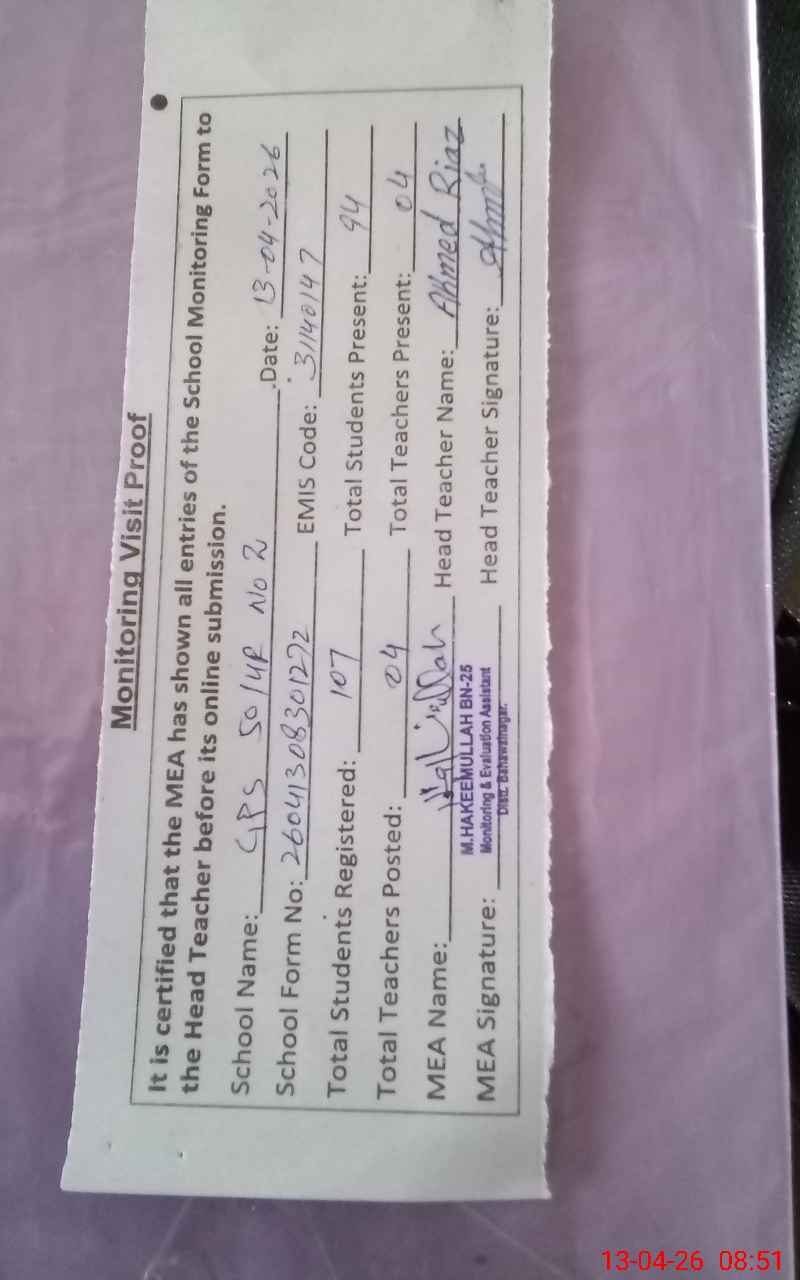 Monitoring Visit Proof
It is certified that the MEA has shown all entries of the School Monitoring Form to
the Head Teacher before its online submission.
School Name: GPS 50/4R No 2 .Date: 13-04-2026
School Form No: 26041308301272 EMIS Code: 31140147
Total Students Registered: 107 Total Students Present: 94
Total Teachers Posted: 04 Total Teachers Present: 04
MEA Name: Head Teacher Name: Ahmed Riaz
M.HAKEEMULLAH BN-25
Monitoring & Evaluation Assistant
Distt. Bahawalnagar.
MEA Signature: Head Teacher Signature:
13-04-26 08:51